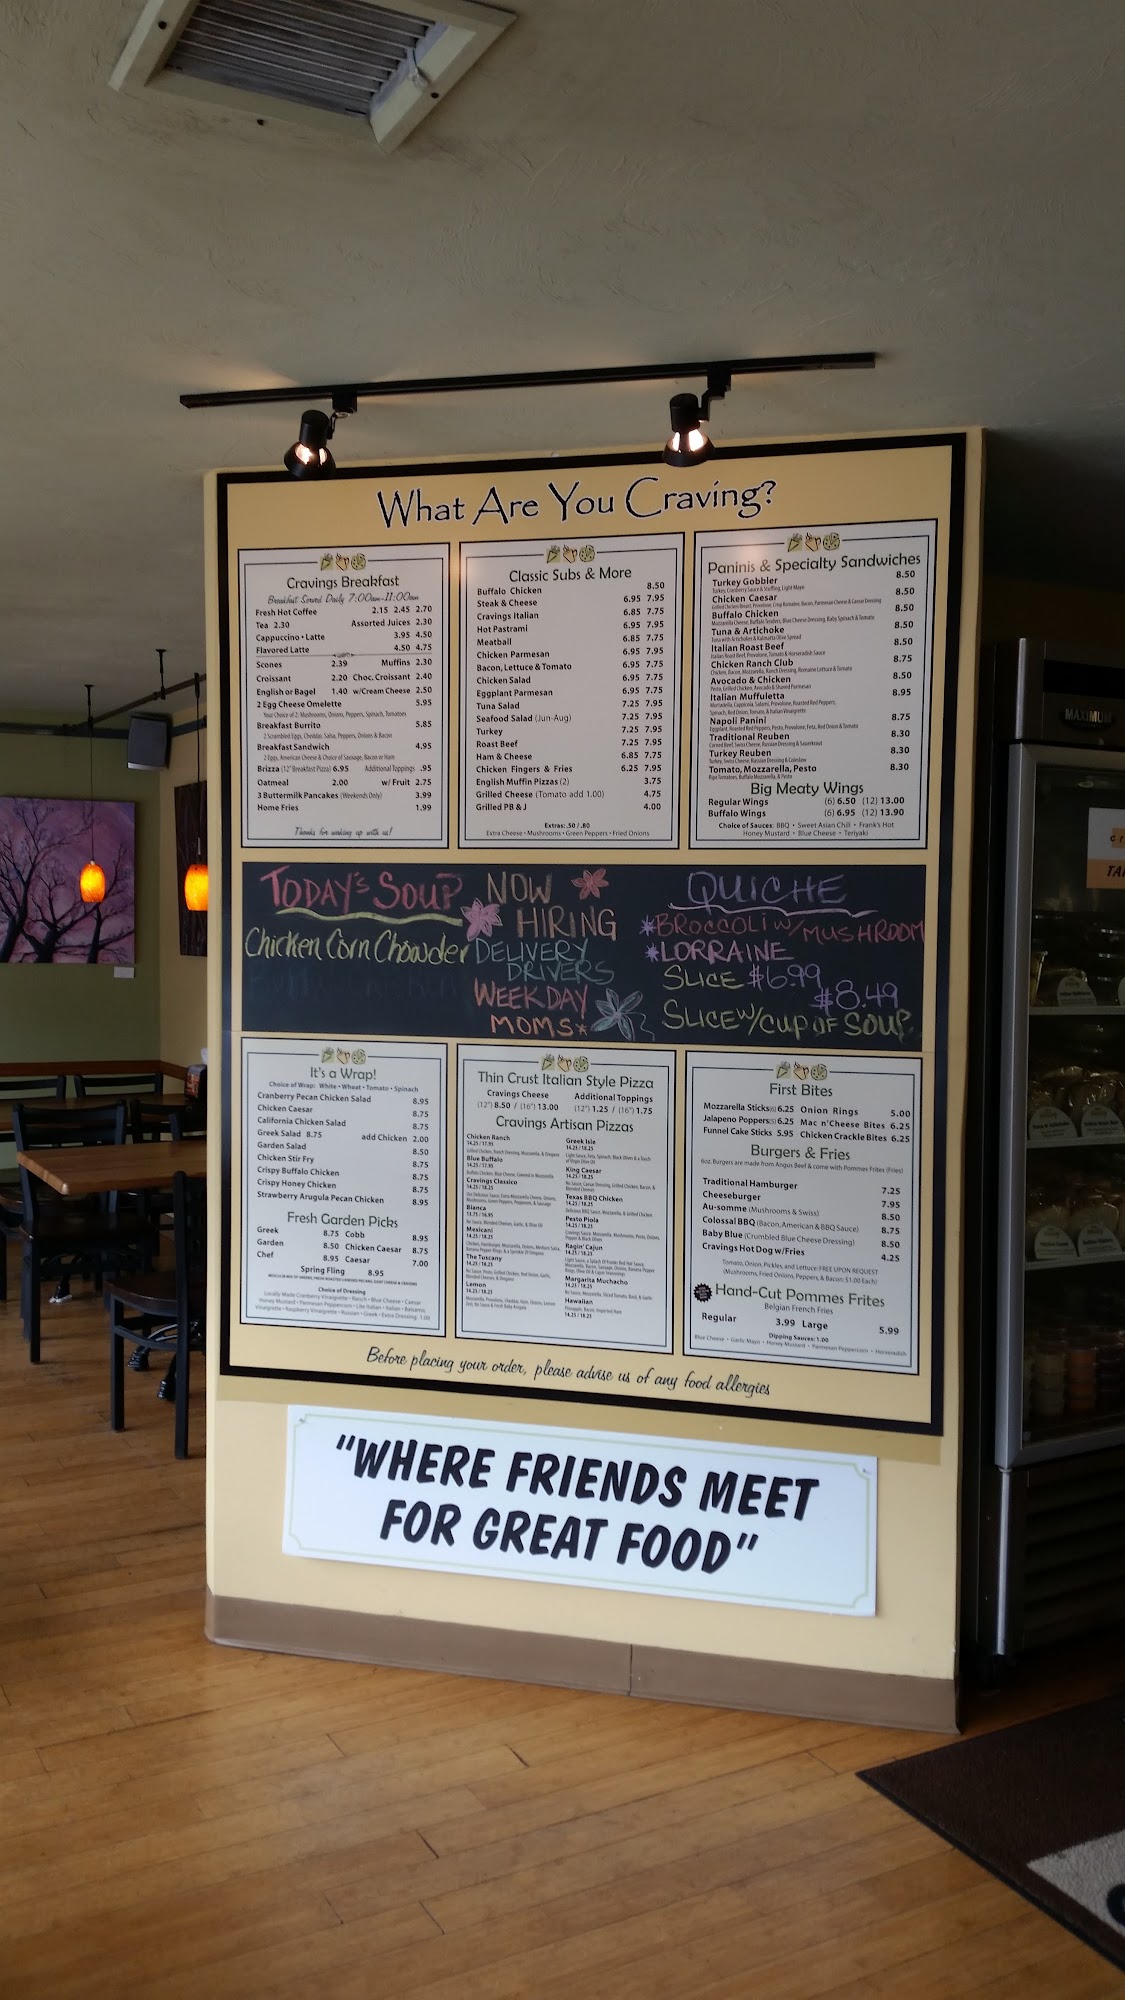 What Are You Craving?
Cravings Breakfast
Breakfast Served Daily 7:00am-11:00am
Fresh Hot Coffee 2.15 2.45 2.70
Tea 2.30 Assorted Juices 2.30
Cappuccino • Latte 3.95 4.50
Flavored Latte 4.50 4.75
Scones 2.39 Muffins 2.30
Croissant 2.20 Choc. Croissant 2.40
English or Bagel 1.40 w/Cream Cheese 2.50
2 Egg Cheese Omelette 5.95
Your Choice of 2: Mushrooms, Onions, Peppers, Spinach, Tomatoes
Breakfast Burrito 5.85
2 Scrambled Eggs, Cheddar, Salsa, Peppers, Onions & Bacon
Breakfast Sandwich 4.95
2 Eggs, American Cheese & Choice of Sausage, Bacon or Ham
Brizza (12" Breakfast Pizza) 6.95 Additional Toppings .95
Oatmeal 2.00 w/ Fruit 2.75
3 Buttermilk Pancakes (Weekends Only) 3.99
Home Fries 1.99
Thanks for waking up with us!
Classic Subs & More
Buffalo Chicken 8.50
Steak & Cheese 6.95 7.95
Cravings Italian 6.85 7.75
Hot Pastrami 6.95 7.95
Meatball 6.85 7.75
Chicken Parmesan 6.95 7.95
Bacon, Lettuce & Tomato 6.95 7.75
Chicken Salad 6.95 7.75
Eggplant Parmesan 6.95 7.75
Tuna Salad 7.25 7.95
Seafood Salad (Jun-Aug) 7.25 7.95
Turkey 7.25 7.95
Roast Beef 7.25 7.95
Ham & Cheese 6.85 7.75
Chicken Fingers & Fries 6.25 7.95
English Muffin Pizzas (2) 3.75
Grilled Cheese (Tomato add 1.00) 4.75
Grilled PB & J 4.00
Extras: .50 / .80
Extra Cheese • Mushrooms • Green Peppers • Fried Onions
Paninis & Specialty Sandwiches
Turkey Gobbler 8.50
Turkey, Cranberry Sauce & Stuffing, Light Mayo
Chicken Caesar 8.50
Grilled Chicken Breast, Provolone, Crisp Romaine, Bacon, Parmesan Cheese & Caesar Dressing
Buffalo Chicken 8.50
Mozzarella Cheese, Buffalo Tenders, Blue Cheese Dressing, Baby Spinach & Tomato
Tuna & Artichoke 8.50
Tuna with Artichokes & Kalmatta Olive Spread
Italian Roast Beef 8.50
Italian Roast Beef, Provolone, Tomato & Horseradish Sauce
Chicken Ranch Club 8.75
Chicken, Bacon, Mozzarella, Ranch Dressing, Romaine Lettuce & Tomato
Avocado & Chicken 8.50
Pesto, Grilled Chicken, Avocado & Shaved Parmesan
Italian Muffuletta 8.95
Mortadella, Cappicola, Salami, Provolone, Roasted Red Peppers,
Spinach, Red Onion, Tomato, & Italian Vinaigrette
Napoli Panini 8.75
Eggplant, Roasted Red Peppers, Pesto, Provolone, Feta, Red Onion & Tomato
Traditional Reuben 8.30
Corned Beef, Swiss Cheese, Russian Dressing & Sauerkraut
Turkey Reuben 8.30
Turkey, Swiss Cheese, Russian Dressing & Coleslaw
Tomato, Mozzarella, Pesto 8.30
Ripe Tomatoes, Buffalo Mozzarella, & Pesto
Big Meaty Wings
Regular Wings (6) 6.50 (12) 13.00
Buffalo Wings (6) 6.95 (12) 13.90
Choice of Sauces: BBQ • Sweet Asian Chili • Frank's Hot
Honey Mustard • Blue Cheese • Teriyaki
TODAY'S SOUP
Chicken Corn Chowder
NOW
HIRING
DELIVERY
DRIVERS
WEEKDAY
MOMS
QUICHE
BROCCOLI W/ MUSHROOM
LORRAINE
SLICE $6.99
$8.49
SLICE W/ CUP OF SOUP.
It's a Wrap!
Choice of Wrap: White • Wheat • Tomato • Spinach
Cranberry Pecan Chicken Salad 8.95
Chicken Caesar 8.75
California Chicken Salad 8.75
Greek Salad 8.75 add Chicken 2.00
Garden Salad 8.50
Chicken Stir Fry 8.75
Crispy Buffalo Chicken 8.75
Crispy Honey Chicken 8.75
Strawberry Arugula Pecan Chicken 8.95
Fresh Garden Picks
Greek 8.75 Cobb 8.95
Garden 8.50 Chicken Caesar 8.75
Chef 8.95 Caesar 7.00
Spring Fling 8.95
Choice of Dressing
Locally Made Cranberry Vinaigrette • Ranch • Blue Cheese • Caesar
Honey Mustard • Parmesan Peppercorn • Lite Italian • Italian • Balsamic
Vinaigrette • Raspberry Vinaigrette • Russian • Greek • Extra Dressing: 1.00
Thin Crust Italian Style Pizza
Cravings Cheese Additional Toppings
(12") 8.50 / (16") 13.00 (12") 1.25 / (16") 1.75
Cravings Artisan Pizzas
Chicken Ranch
Blue Buffalo
Cravings Classico
Bianca
Mexicani
The Tuscany
Lemon
Greek Isle
King Caesar
Texas BBQ Chicken
Pesto Piola
Ragin' Cajun
Margarita Muchacho
Hawaiian
First Bites
Mozzarella Sticks 6.25 Onion Rings 5.00
Jalapeno Poppers 6.25 Mac n' Cheese Bites 6.25
Funnel Cake Sticks 5.95 Chicken Crackle Bites 6.25
Burgers & Fries
6oz. Burgers are made from Angus Beef & come with Pommes Frites (Fries)
Traditional Hamburger 7.25
Cheeseburger 7.95
Au-somme (Mushrooms & Swiss) 8.50
Colossal BBQ (Bacon, American & BBQ Sauce) 8.75
Baby Blue (Crumbled Blue Cheese Dressing) 8.50
Cravings Hot Dog w/Fries 4.25
Tomato, Onion, Pickles, and Lettuce: FREE UPON REQUEST
(Mushrooms, Fried Onions, Peppers, & Bacon: $1.00 Each)
Hand-Cut Pommes Frites
Belgian French Fries
Regular 3.99 Large 5.99
Dipping Sauces: 1.00
Blue Cheese • Garlic Mayo • Honey Mustard • Parmesan Peppercorn • Horseradish
Before placing your order, please advise us of any food allergies
"WHERE FRIENDS MEET
FOR GREAT FOOD"
MAXIMUM